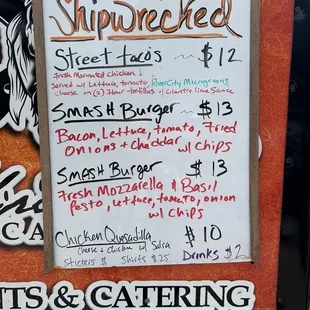 Shipwrecked
Street taco's ~ $12
Fresh Marinated Chicken
Served w/ Lettuce, tomato, RiverCity Microgreens
cheese on (2) flour tortillas w/ cilantro lime Sauce
SMASH Burger ~ $13
Bacon, Lettuce, tomato, Fried
Onions + cheddar w/ chips
SMASH Burger ~ $13
Fresh Mozzarella & Basil
Pesto, Lettuce, tomato, onion
w/ chips
Chicken Quesadilla $10
cheese + chicken w/ Salsa
Stickers $ Shirts $25 Drinks $2
CA
TS & CATERING